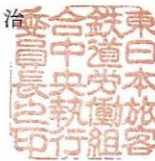 治
東日本旅客
鉄道労働組
合中央執行
委員長之印